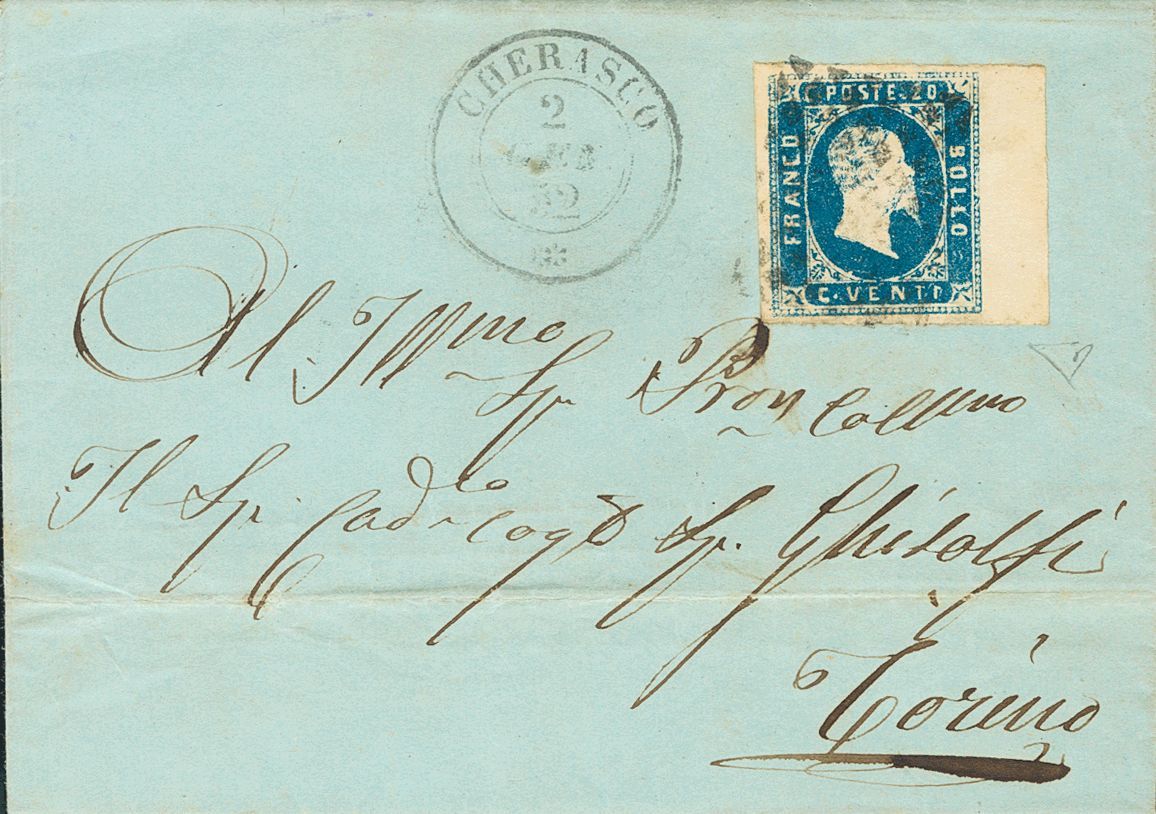 CHERASCO
2
GEN
52
C. POSTE. 20
FRANCO
BOLLO
C. VENTI
Al Illmo Sig. Pron Collmo
Il Sig. Cad. Sig. Ghisolfi
Torino